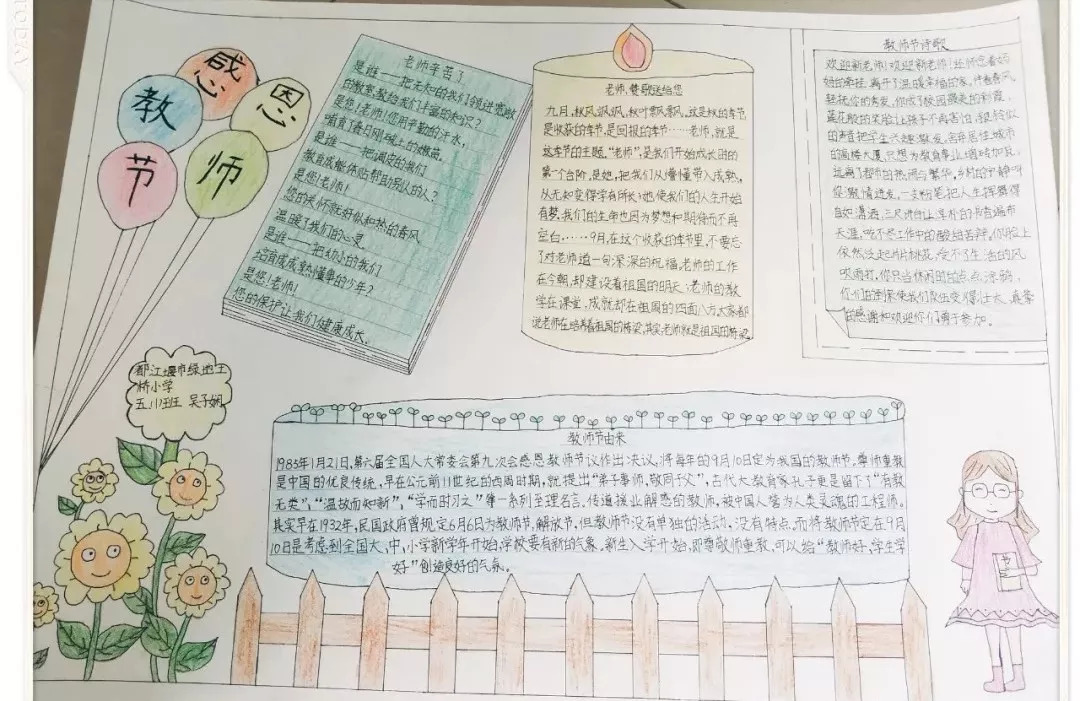 感恩
教师节
老师辛苦了
是谁——把无知的我们领进宽敞
的教室,教给我们丰富的知识?
是您!老师!您用辛勤的汗水,
哺育了春日刚破土的嫩苗。
是谁——把调皮的我们
教育成能体贴帮助别人的人?
是您!老师!
您的关怀就好似和煦的春风,
温暖了我们的心灵。
是谁——把幼小的我们
培育成成熟懂事的少年?
是您!老师!
您的保护让我们健康成长。
老师,赞歌送给您
九月,秋风飒飒,秋叶飘飘,这是秋的季节
是收获的季节,是回报的季节……老师,就是
这季节的主题。"老师",是我们开始成长田的
第一个台阶,是她,把我们从懵懂带入成熟,
从无知变得学有所长;她使我们的人生开始
有梦,我们的生命也因为梦想和期待而不再
空白……9月,在这个收获的季节里,不要忘
了对老师道一句深深的祝福,老师的工作
在今朝,却建设着祖国的明天;老师的教
学在课堂,成就却在祖国的四面八方大家都
说老师在培养着祖国的栋梁,其实,老师就是祖国的栋梁。
教师节诗歌
欢迎新老师!欢迎新老师!
妈的牵挂,离开了温暖幸福的家,伴着春风,
轻抚你的秀发,你成了校园最美的彩霞,
的声音把学生兴趣激发,舍弃居住城市
的高楼大厦,只想为教育事业增砖加瓦,
远离了都市的热闹与繁华,乡村的宁静叫
您激情迸发,一支粉笔把人生挥舞得
自如潇洒,三尺讲台让淳朴的书香遍布
天涯,吃不尽工作中的酸甜苦辣,你脸上
依然泛起片片桃花,受不了生活的风
吹雨打,你只当休闲的指指点点涂鸦,
你们的到来使我们队伍变得壮大,真挚
的感谢和欢迎你们勇于参加。
都江堰市绿地玉
桥小学
五、1班 吴子娴
教师节由来
1985年1月21日,第六届全国人大常委会第九次会感恩教师节议作出决议,将每年的9月10日定为我国的教师节。尊师重教
是中国的优良传统,早在公元前11世纪的西周时期,就提出"弟子事师,敬同于父",古代大教育家孔子更是留下了"有教
无类","温故而知新","学而时习之"等一系列至理名言。传道授业解惑的教师,被中国人誉为人类灵魂的工程师。
其实早在1932年,民国政府曾规定6月6日为教师节,解放节,但教师节没有单独的活动,没有特点,而将教师节定在9月
10日是考虑到全国大、中、小学新学年开始,学校要有新的气象。新生入学开始,即尊敬师重教,可以给"教师好,学生学
好"创造良好的气氛。